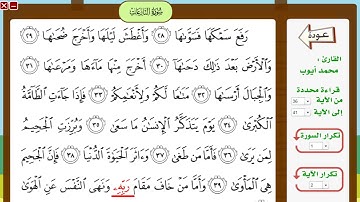 سُورَةُ النَّازِعَاتِ
رَفَعَ سَمْكَهَا فَسَوَّىٰهَا ٢٨ وَأَغْطَشَ لَيْلَهَا وَأَخْرَجَ ضُحَىٰهَا ٢٩
وَٱلْأَرْضَ بَعْدَ ذَٰلِكَ دَحَىٰهَآ ٣٠ أَخْرَجَ مِنْهَا مَآءَهَا وَمَرْعَىٰهَا ٣١
وَٱلْجِبَالَ أَرْسَىٰهَا ٣٢ مَتَٰعًا لَّكُمْ وَلِأَنْعَٰمِكُمْ ٣٣ فَإِذَا جَآءَتِ ٱلطَّآمَّةُ
ٱلْكُبْرَىٰ ٣٤ يَوْمَ يَتَذَكَّرُ ٱلْإِنسَٰنُ مَا سَعَىٰ ٣٥ وَبُرِّزَتِ ٱلْجَحِيمُ
لِمَن يَرَىٰ ٣٦ فَأَمَّا مَن طَغَىٰ ٣٧ وَءَاثَرَ ٱلْحَيَوٰةَ ٱلدُّنْيَا ٣٨ فَإِنَّ ٱلْجَحِيمَ
هِىَ ٱلْمَأْوَىٰ ٣٩ وَأَمَّا مَنْ خَافَ مَقَامَ رَبِّهِۦ وَنَهَى ٱلنَّفْسَ عَنِ ٱلْهَوَىٰ
عودة
القارئ :
محمد أيوب
قراءة محددة
من الآية 36
إلى الآية 41
تكرار السورة
1
تكرار الآية
2